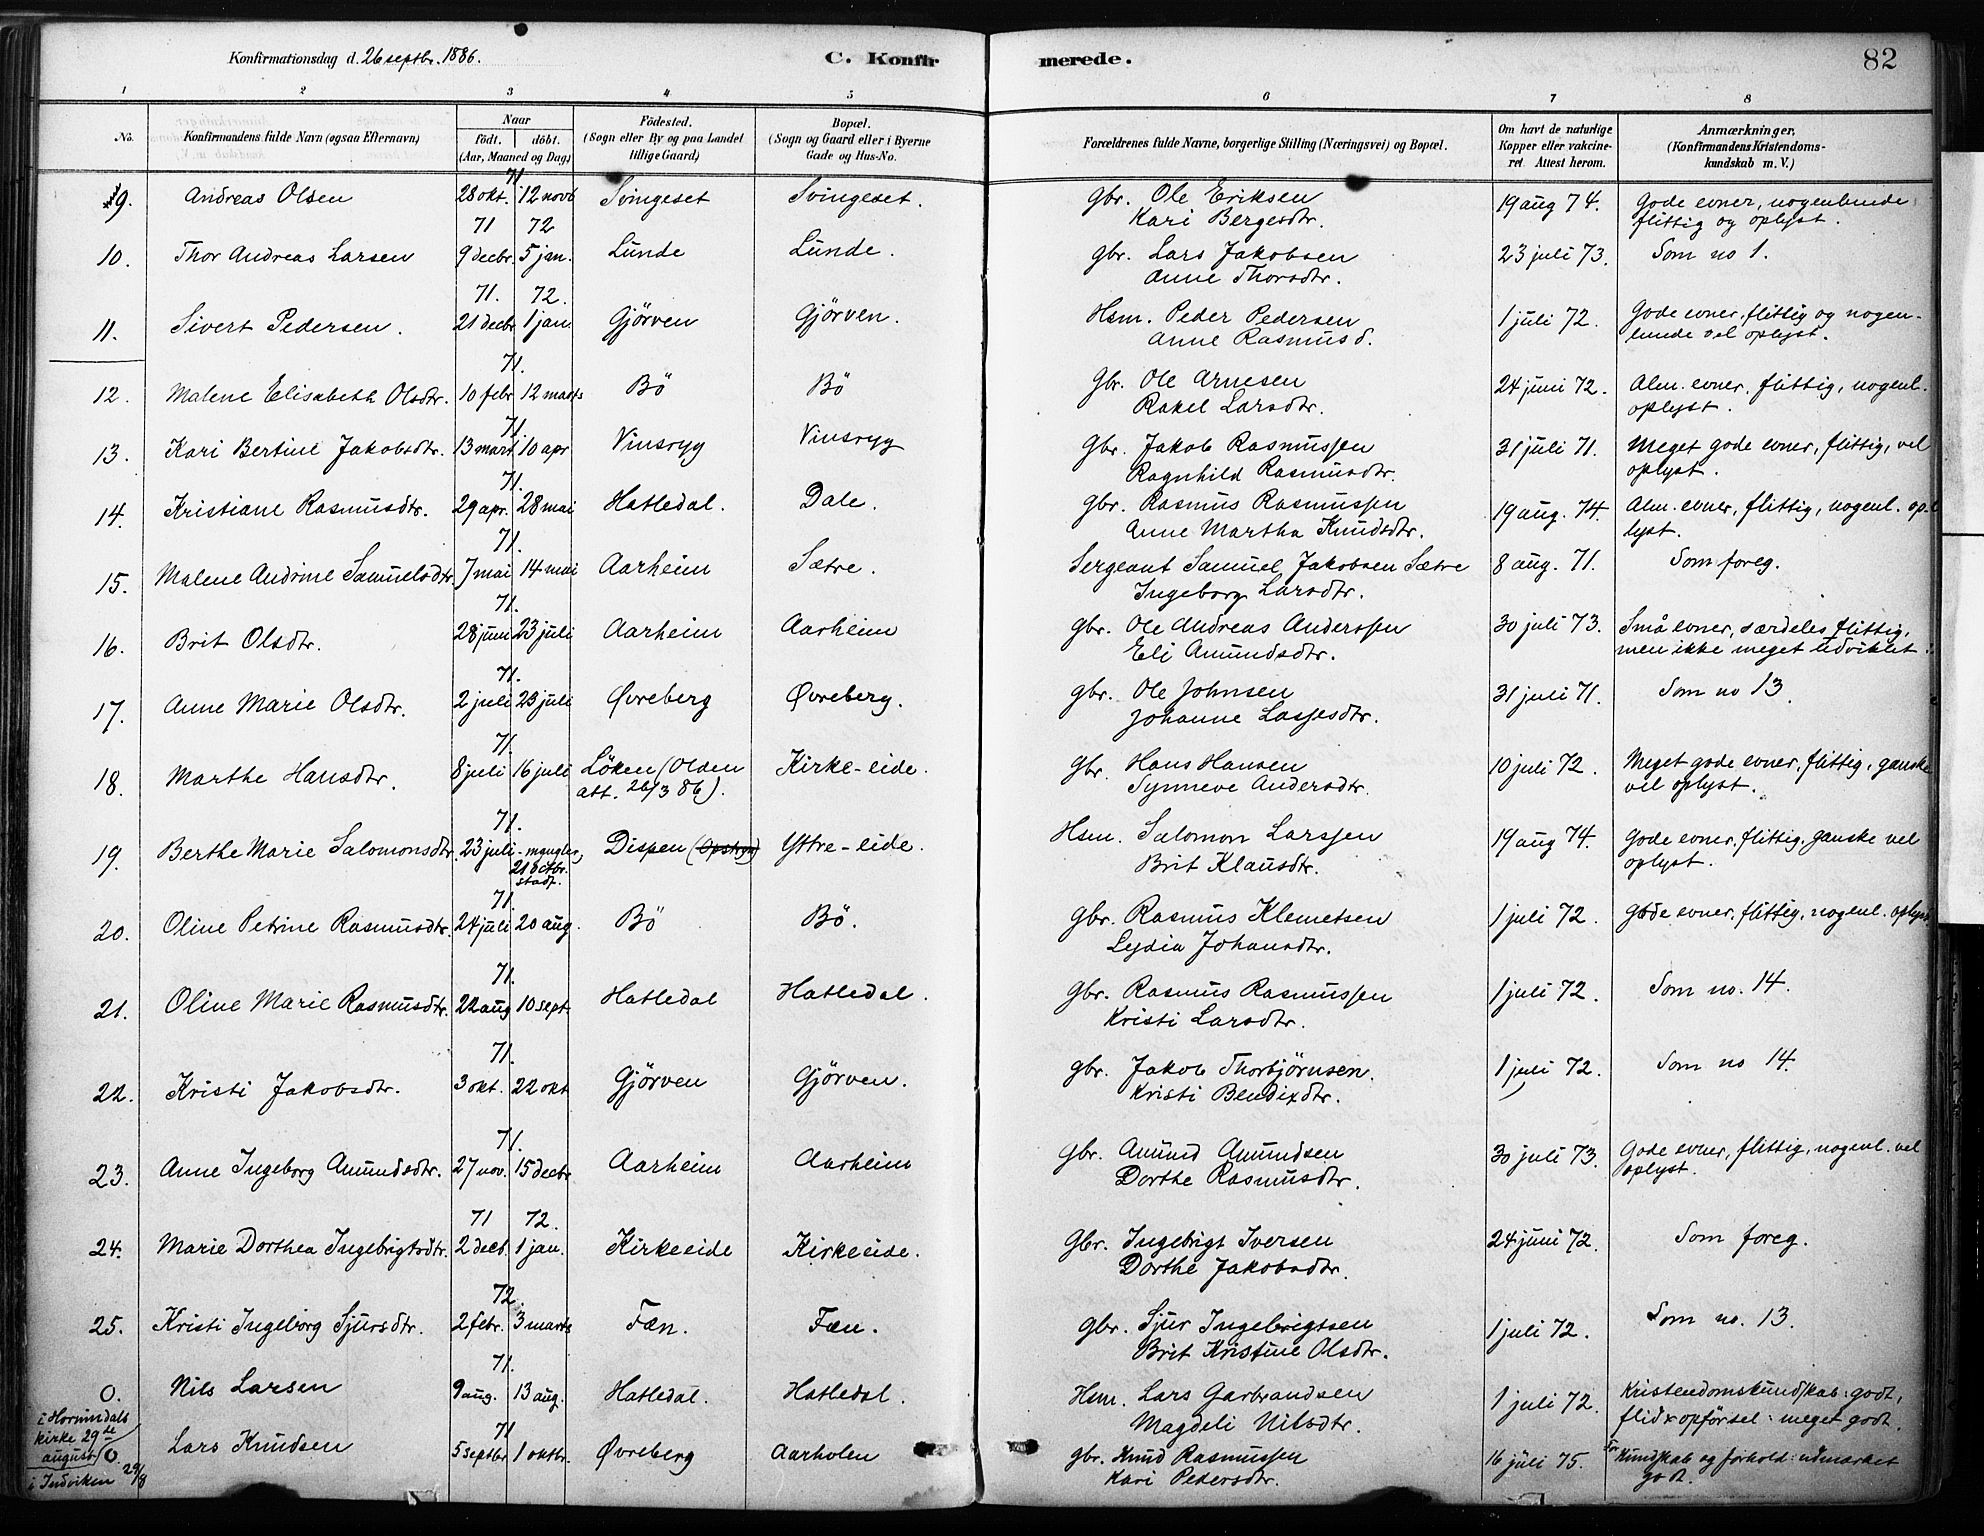 Konfirmationsdag d. 26 septbr. 1886.
C. Konfirmerede.
82
1 2 3 4 5 6 7 8
No.
Konfirmandens fulde Navn (ogsaa Efternavn)
Naar
födt. döbt.
(Aar, Maaned og Dag)
Födested.
(Sogn eller By og paa Landet
tillige Gaard)
Bopæl.
(Sogn og Gaard eller i Byerne
Gade og Hus-No.
Forældrenes fulde Navne, borgerlige Stilling (Næringsvei) og Bopæl.
Om havt de naturlige
Kopper eller vakcine-
ret. Attest herom.
Anmærkninger,
(Konfirmandens Kristendoms-
kundskab m. V.)
71
9. Andreas Olsen 28 okt. 12 novb Svingeset Svingeset. gbr. Ole Eriksen 19 aug 74. Gode evner, nogenlunde
Kari Bergesdtr. flittig og oplyst.
71 72
10. Thor Andreas Larsen 9 decbr. 5 jan. Lunde Lunde. gbr. Lars Jakobsen 23 juli 73. Som no 1.
Anne Thorsdtr.
71. 72.
11. Sivert Pedersen. 21 decbr 1 jan. Gjörven Gjörven. Hsm. Peder Pedersen 1 juli 72. Gode evner, flittig og nogen-
Anne Rasmusd. lunde vel oplyst.
71.
12. Malene Elisabeth Olsdtr. 10 febr 12 marts Bö Bö gbr. Ole Arnesen 24 juni 72. Alm. evner, flittig, nogenl.
Rakel Larsdtr. oplyst.
71.
13. Kari Bertine Jakobsdtr. 13 mart 10 apr Vinsryg Vinsryg Gbr. Jakob Rasmussen 31 juli 71. Meget gode evner, flittig, vel
Ragnhild Rasmusdtr. oplyst.
71.
14. Kristiane Rasmusdtr. 29 apr. 28 mai Hatledal. Dale. gbr. Rasmus Rasmussen 19 aug. 74. Alm. evner, flittig, nogenl. op-
Anne Martha Knudsdtr. lyst.
71.
15. Malene Andrine Samuelsdtr. 7 mai 14 mai Aarheim Sætre. Sergeant Samuel Jakobsen Sætre 8 aug. 71. Som foreg.
Ingeborg Larsdtr.
71.
16. Brit Olsdtr. 28 juni 23 juli Aarheim Aarheim gbr. Ole Andreas Anderssen 30 juli 73. Små evner, særdeles flittig,
Eli Amundsdtr. men ikke meget udviklet.
71.
17. Anne Marie Olsdtr. 2 juli 23 juli Øvreberg Øvreberg. gbr. Ole Johnsen 31 juli 71. Som no 13.
Johanne Lassesdtr.
71.
18. Marthe Hansdtr. 8 juli 16 juli Löken (Olden Kirke-eide. gbr. Hans Hansen 10 juli 72. Meget gode evner, flittig, ganske
att. 26/3 86). Synneve Andersdtr. vel oplyst.
71.
19. Berthe Marie Salomonsdtr. 23 juli - mangler, Dispen (Opstryn) Yttre-eide. Hsm. Salomon Larssen 19 aug 74. Gode evner, flittig, ganske vel
21 octbr. Brit Klausdtr. oplyst.
stadf.
71.
20. Oline Petrine Rasmusdtr. 24 juli 20 aug. Bö Bö. gbr. Rasmus Klemetsen 1 juli 72. Gode evner, flittig, nogenl. oplyst
Lydia Johansdtr.
71.
21. Oline Marie Rasmusdtr. 22 aug 10 sept. Hatledal Hatledal. gbr. Rasmus Rasmussen 1 juli 72. Som no. 14.
Kristi Larsdtr.
71.
22. Kristi Jakobsdtr. 3 okt. 22 okt Gjörven Gjörven. gbr. Jakob Thorbjörnsen. 1 juli 72. Som no 14.
Kristi Bendixdtr.
71.
23. Anne Ingeborg Amundsdtr. 27 nov. 15 decbr Aarheim Aarheim gbr. Amund Amundsen 30 juli 73. Gode evner, flittig, nogenl. vel
Dorthe Rasmusdtr. oplyst.
71 72.
24. Marie Dorthea Ingebrigtsdtr. 2 decb. 1 jan. Kirkeeide Kirkeeide. Gbr. Ingebrigt Iversen 24 juni 72. Som foreg.
Dorthe Jakobsdtr.
72
25. Kristi Ingeborg Sjursdtr. 2 febr. 3 marts Fæn. Fæn. gbr. Sjur Ingebrigtsen 1 juli 72. Som no. 13.
Brit Kristine Olsdtr.
71.
0. Nils Larsen 9 aug. 13 aug. Hatledal. Hatledal. Hsm. Lars Garbrandsen 1 juli 72. Kristendomskundskab: godt,
i Hornindals Magdeli Nilsdtr. flid & opförsel: meget godt.
kirke 29de
august 71
0. Lars Knudsen 5 septbr 1 oktbr. Øvreberg Aarholen gbr. Knud Rasmussen 16 juli 75. For Kundskab og forhold: udmærket
i Indviken 29/8 Kari Pedersdtr. godt.